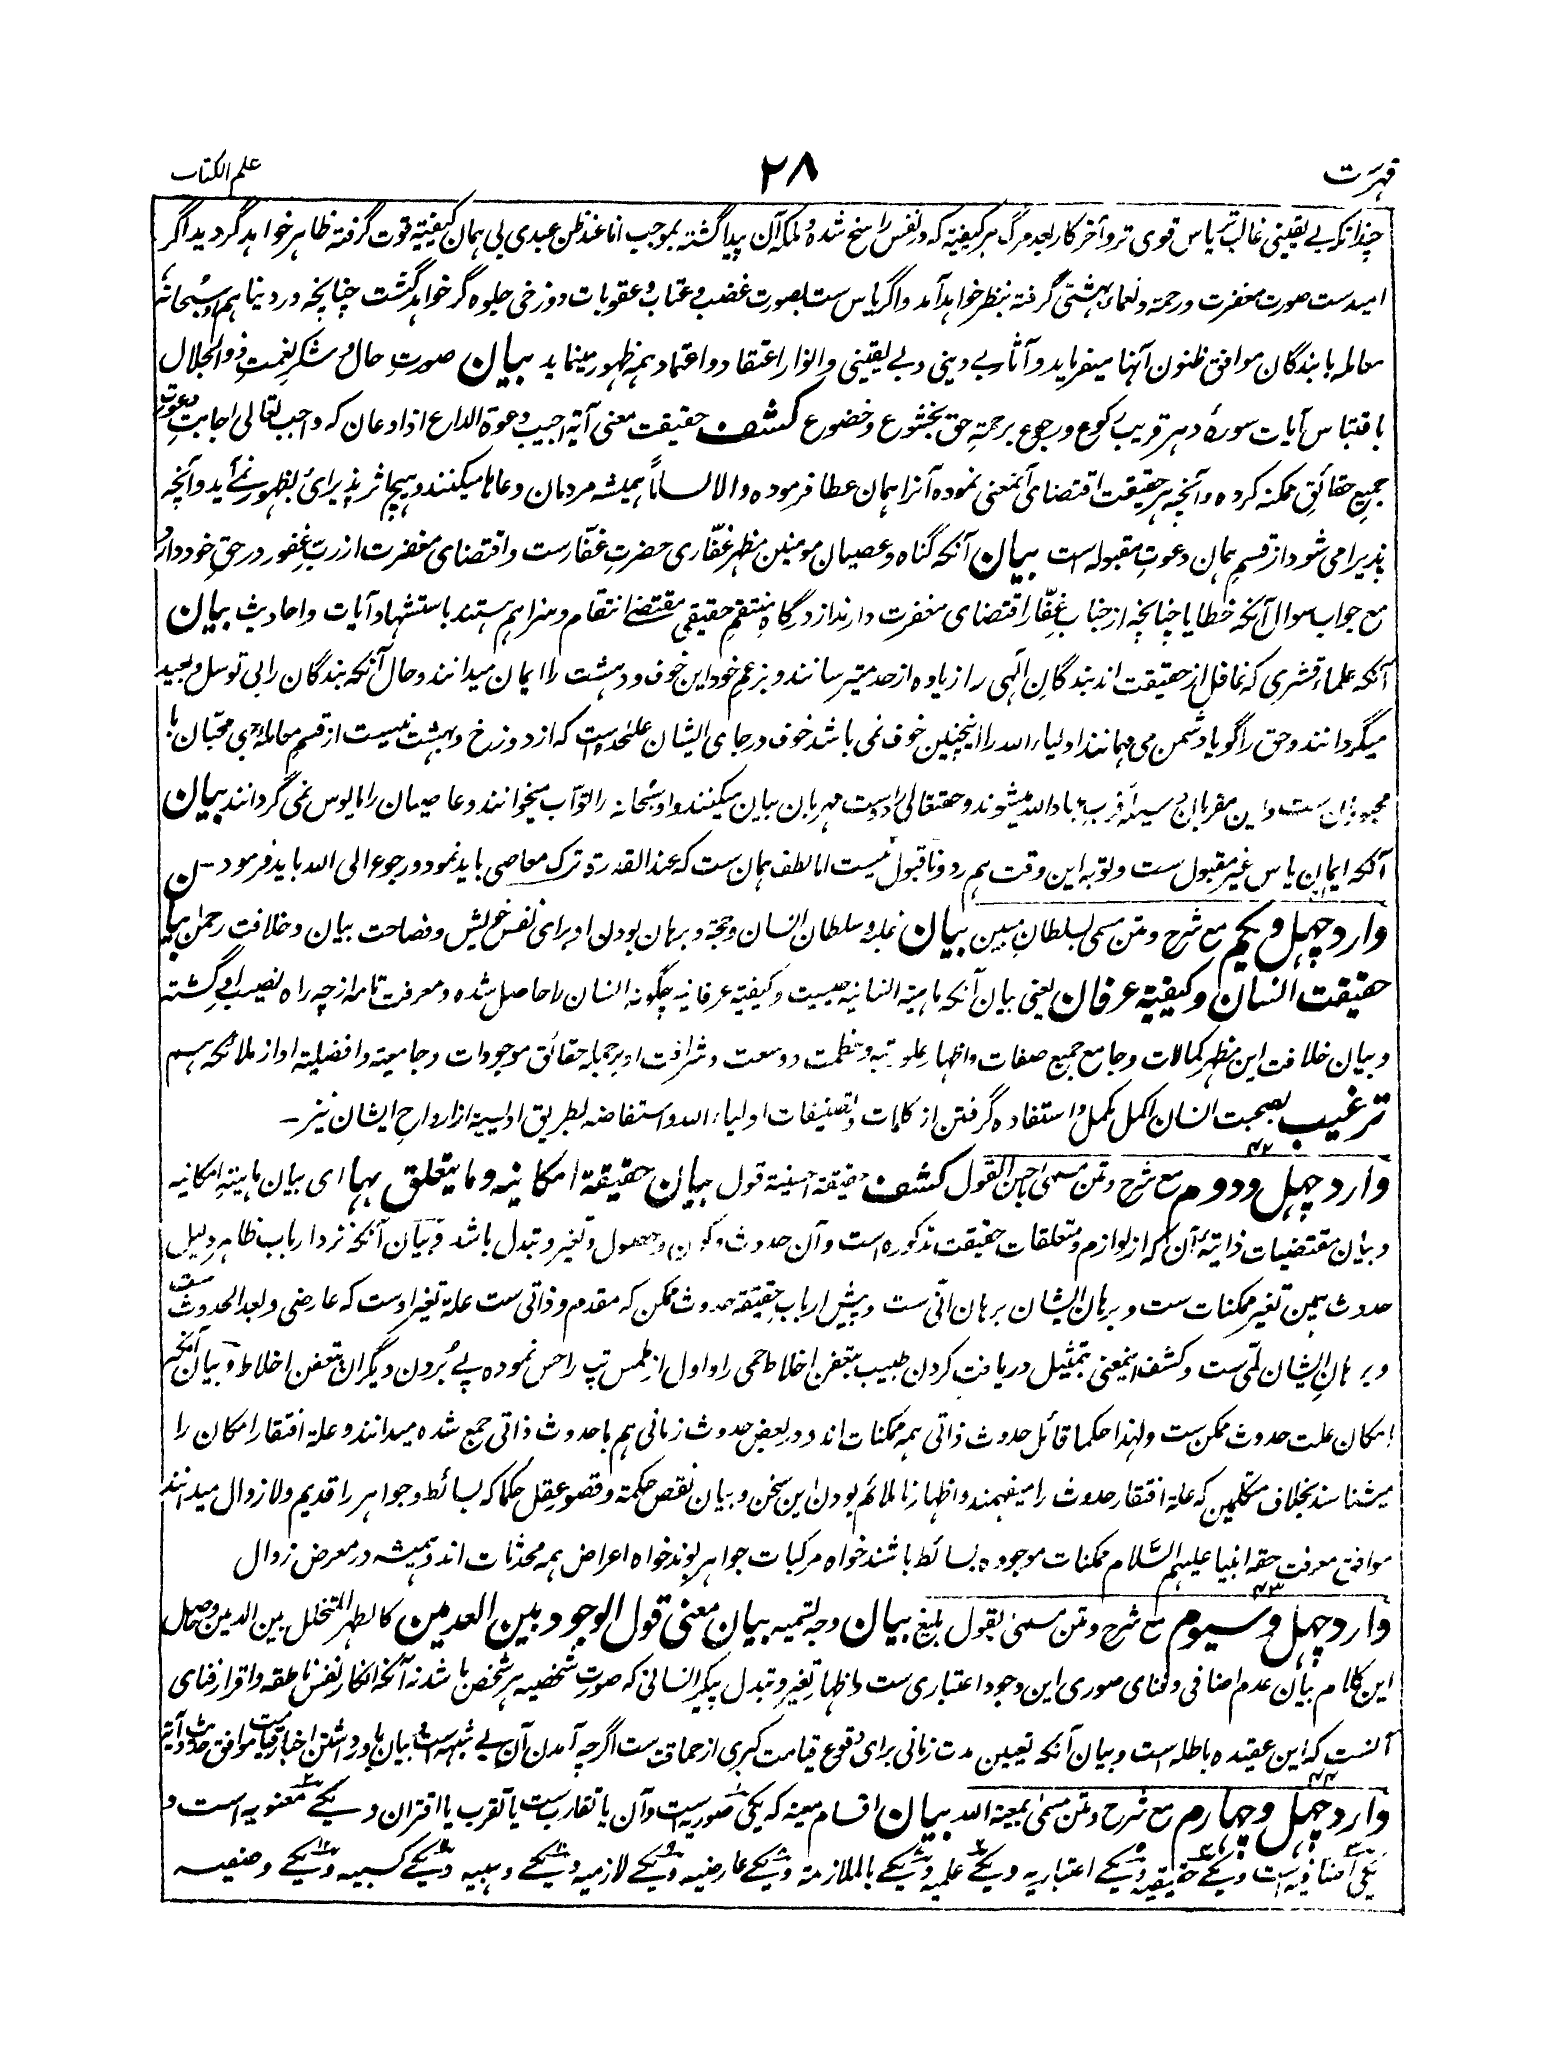 فہرست ۲۸ علم الکتاب
چندانکہ بے یقینی غالب تر یاس قوی تر و آخر کار بعد مرگ ہر کیفیتہ کہ در نفس راسخ شدہ و ملکہ آن پیدا گشتہ بموجب انا عند ظن عبدی بی ہمان کیفیتہ قوت گرفتہ ظاہر خواہد گردید اگر
امیدست صورت مغفرت و رحمة و نعماے بہشتی گرفتہ بنظر خواہد آمد و اگر یاس ست بصورت غضب و عتاب و عقوبات دوزخی جلوہ گر خواہد گشت چنانچہ در دنیا ہم او سبحانہ
معاملہ با بندگان موافق ظنون آنہا میفرماید و آثار بے دینی و بے یقینی و انوار اعتقاد و اعتماد ہمہ ظہور مینماید بیان صورتِ حال و شکرِ نعمتِ ذوالجلال
باقتباس آیات سورۂ دہر قریب رکوع و رجوع برحمتہ حق بخشوع و خضوع کشف حقیقت معنی آیۃ اجیب دعوة الداع اذا دعان کہ واجب تعالی اجابتِ دعوت
جمیع حقائقِ ممکنہ کردہ و آنچہ ہر حقیقت اقتضای آنمعنی نمودہ آنرا ہمان عطا فرمودہ والا لساناً ہمیشہ مردمان دعاہا میکنند و ہیچ اثر پذیرائی بظہور نمے آید و آنچہ
پذیرا می شود از قسمِ ہمان دعوتِ مقبولہ است بیان آنکہ گناہ و عصیان مومنین مظہر غفّاری حضرتِ غفّارست و اقتضای مغفرت از ربِّ غفور در حقِ خود دارد
مع جواب سوال آنکہ خطایا چنانچہ از جناب غفّار اقتضای مغفرت دارند از درگاہِ منتقم حقیقی مقتضے انتقام و سزا ہم ہستند باستشہاد آیات و احادیث بیان
آنکہ علماء قشری کہ غافل از حقیقت اند بندگانِ الٰہی را زیادہ از حد میترسانند و بزعمِ خود این خوف و دہشت را ایمان میدانند و حال آنکہ بندگان را بی توسل و بعید
میگردانند و حق را گویا دشمن می فہمانند اولیاء اللہ را اینچنین خوف نمی باشد خوف و رجای ایشان علٰحدہ است کہ از دوزخ و بہشت نیست از قسمِ معاملہ محبی محبّان با
محبوبان ست و این مقربان وسیلہ قرب عباد اللہ میشوند و حقتعالیٰ را دوست مہربان بیان میکنند و او سبحانہ را توّاب میخوانند و عاصیان را مایوس نمی گردانند بیان
آنکہ ایمانِ یاس غیر مقبول ست و توبہ این وقت ہم رد و ناقبول نیست اما لطف ہمان ست کہ عند القدرة ترکِ معاصی باید نمود و رجوع الی اللہ باید فرمود
وارد چہل و یکم مع شرح و متن مسمی بسلطانِ مبین بیان غلبہ و سلطان انسان و حجة و برہان بودن او برای نفسِ خویش و فصاحت بیان و خلافت رحمٰن بیان
حقیقت انسان و کیفیتہ عرفان یعنی بیان آنکہ ماہیتہ انسانیہ چیست و کیفیتہ عرفانیہ چگونہ انسان را حاصل شدہ و معرفت تامہ از چہ راہ نصیبِ او گشتہ
و بیان خلافت این مظہرِ کمالات و جامع جمیع صفات و اظہارِ علو مرتبہ و عظمت و وسعت و شرافت او بر جملہ حقائق موجودات و جامعیتہ و افضلیتہ او از ملائکہ ہم
ترغیب بصحبت انسان اکمل مکمل و استفادہ گرفتن از کلمات و تصنیفات اولیاء اللہ و استفاضہ بطریق اویسیہ از ارواحِ ایشان نیز ۔
۴۲
وارد چہل و دوم مع شرح و متن مسمیٰ باحسن القول کشف حقیقۃ احسنیة قول بیان حقیقة امکانیہ و ما یتعلق بہا ای بیان ماہیتہِ امکانیہ
و بیان مقتضیات ذاتیہ آن کہ از لوازم و متعلقات حقیقت مذکورہ است و آن حدوث و کون و حصول و تغیر و تبدل باشد و بیان آنکہ نزد ارباب ظاہر دلیل
حدوث ہمین تغیر ممکنات ست و برہان ایشان برہان انّی ست و پیش ارباب حقیقة حدوث ممکن کہ مقدم و ذاتی ست علة تغیر اوست کہ عارضی و بعد الحدوث ست
و برہانِ ایشان لمّی ست و کشف اینمعنی بتمثیل دریافت کردن طبیب بتعفن اخلاط حمی را و اول از لمس تپ را حس نمودہ پے بُردن دیگران بتعفن اخلاط و بیان آنکہ
امکان علت حدوث ممکن ست و لہذا حکما قائل حدوث ذاتی ہمہ ممکنات اند و در بعض حدوث زمانی ہم با حدوث ذاتی جمع شدہ میدانند و علة افتقار امکان را
میشناسند بخلاف متکلمین کہ علة افتقار حدوث را میفہمند و اظہار ناملائم بودن این سخن و بیان نقص حکمة و قصور عقل حکما کہ بسائط و جواہر را قدیم و لا زوال میدانند
موافق معرفت حقہ انبیا علیہم السّلام ممکنات موجودہ بسائط باشند خواہ مرکبات جواہر بوند خواہ اعراض ہمہ محدثات اند و ہمیشہ در معرض زوال
۴۳
وارد چہل و سیوم مع شرح و متن مسمیٰ بقول بلیغ بیان وجہ تسمیہ بیان معنی قول الوجود بین العدمین کالطہر المتخلل بین الدمین و حاصل
این کلام بیان عدم اضافی و فنای صوری این وجود اعتباری ست و اظہار تغیر و تبدل پیکر انسانی کہ صورتِ شخصیہ ہر شخص باشد نہ آنکہ انکار نفس ناطقہ و اقرار فنای
آنست کہ این عقیدہ باطلہ است و بیان آنکہ تعیین مدت زمانی برای وقوع قیامت کبری از حماقت ست اگرچہ آمدن آن بے شبہہ است و بیان باور داشتن اخبار قیامت موافق حدیث و آیۃ
۴۴
وارد چہل و چہارم مع شرح و متن مسمیٰ بمعیة اللہ بیان اقسام معیہ کہ یکی صوریہ ست و آن یا تقارب ست یا تقرب یا اقتران و یکے معنویہ است و
یکی اضافیہ است و یکے حقیقیہ و یکے اعتباریہ و یکے علمیہ و یکے بالملازمة و یکے عارضیہ و یکے لازمیہ و یکے وہبیہ و یکے کسبیہ و یکے وصفیہ